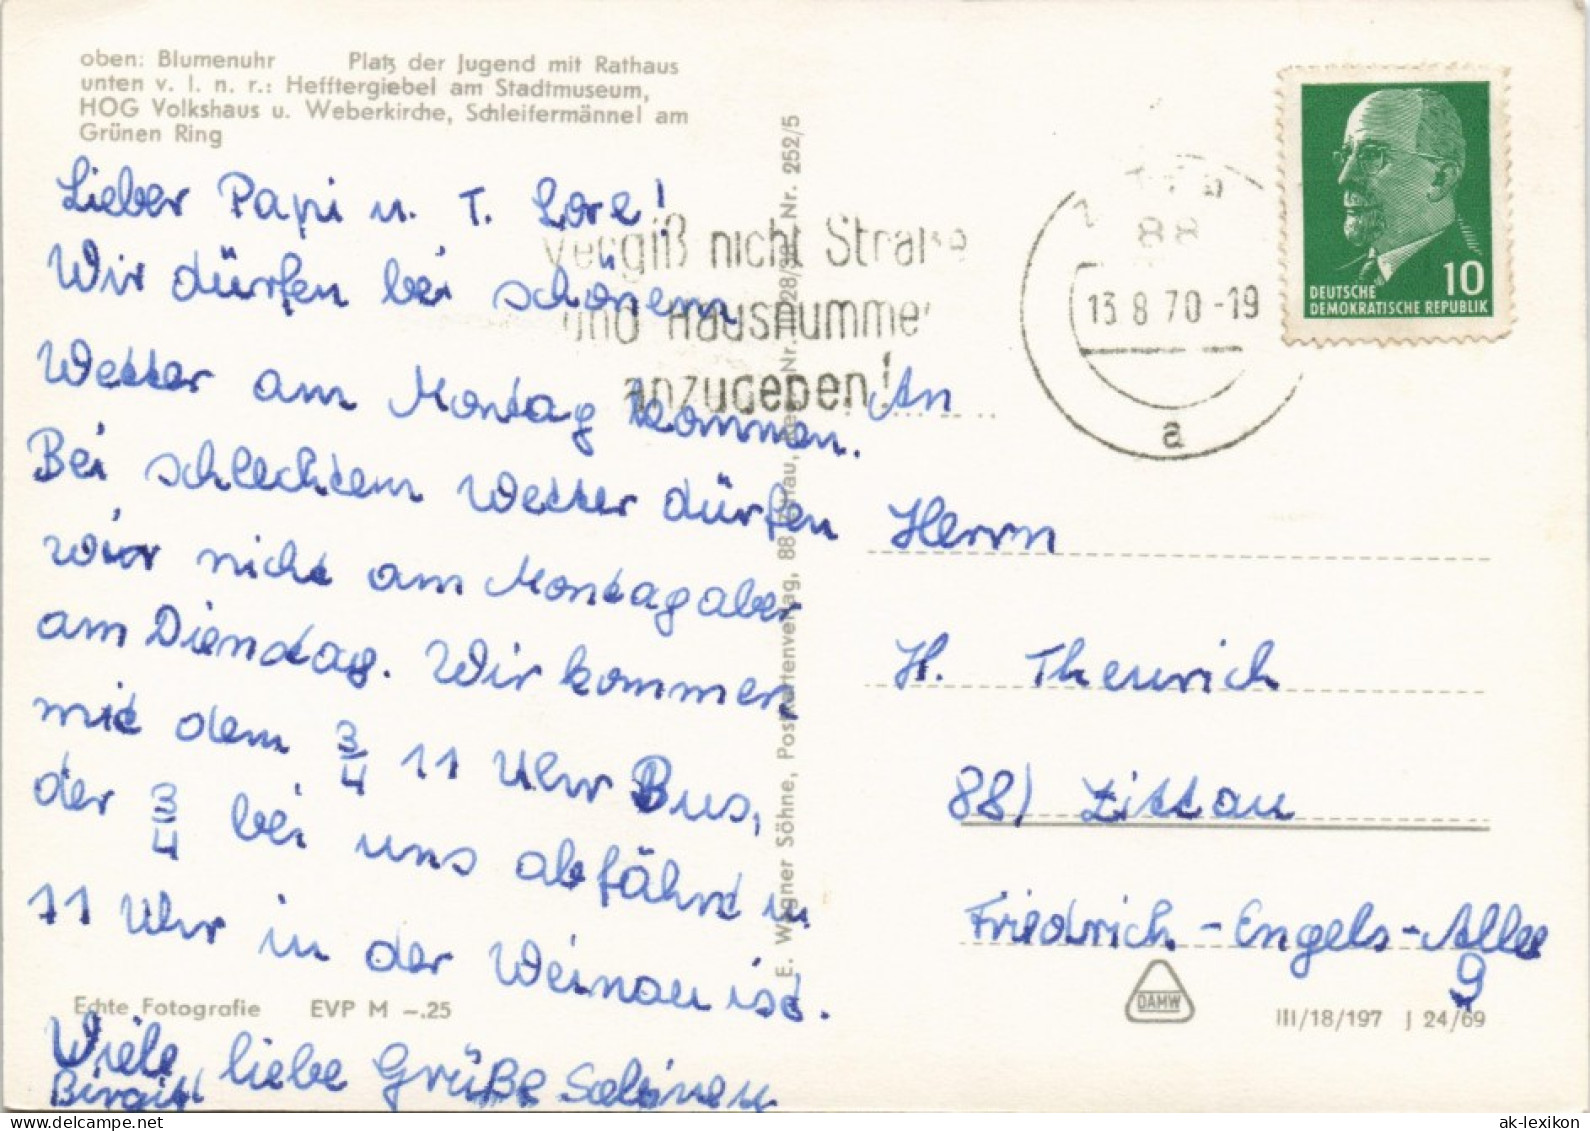 oben: Blumenuhr Platz der Jugend mit Rathaus
unten v. l. n. r.: Hefftergiebel am Stadtmuseum,
HOG Volkshaus u. Weberkirche, Schleifermännel am
Grünen Ring
Lieber Papi u. T. Lore!
Wir dürfen bei schönem
Wetter am Montag kommen.
Bei schlechtem Wetter dürfen
wir nicht am Montag aber
am Diendtag. Wir kommen
mit dem 3/4 11 Uhr Bus,
der 3/4 bei uns abfährt u
11 Uhr in der Weinau ist.
Viele liebe Grüße Sabine u
Birgit
Echte Fotografie EVP M –.25
E. Wagner Söhne, Postkartenverlag, 88 Zittau, Nr. 252/5
Vergiß nicht Straße
und Hausnummer
anzugeben!
88
13.8.70-19
a
10
DEUTSCHE
DEMOKRATISCHE REPUBLIK
An
Herrn
H.
88) Zittau
Friedrich-Engels-Allee
9
DAMW
III/18/197 J 24/69
ak-lexikon